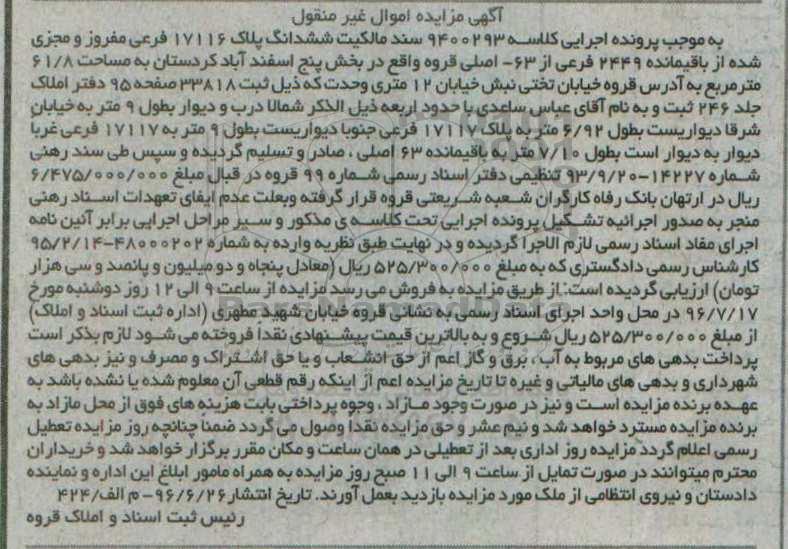 آگهی مزایده اموال غیر منقول
به موجب پرونده اجرایی کلاسه ۹۴۰۰۲۹۳ سند مالکیت ششدانگ پلاک ۱۷۱۱۶ فرعی مفروز و مجزی
شده از باقیمانده ۲۴۴۹ فرعی از ۶۳- اصلی قروه واقع در بخش پنج اسفند آباد کردستان به مساحت ۶۱/۸
مترمربع به آدرس قروه خیابان تختی نبش خیابان ۱۲ متری وحدت که ذیل ثبت ۳۳۸۱۸ صفحه ۹۵ دفتر املاک
جلد ۲۴۶ ثبت و به نام آقای عباس ساعدی با حدود اربعه ذیل الذکر شمالا درب و دیوار بطول ۹ متر به خیابان
شرقا دیواریست بطول ۶/۹۲ متر به پلاک ۱۷۱۱۷ فرعی جنوبا دیواریست بطول ۹ متر به ۱۷۱۱۷ فرعی غربا
دیوار به دیوار است بطول ۷/۱۰ متر به باقیمانده ۶۳ اصلی ، صادر و تسلیم گردیده و سپس طی سند رهنی
شماره ۱۴۲۲۷-۹۳/۹/۲۰ تنظیمی دفتر اسناد رسمی شماره ۹۹ قروه در قبال مبلغ ۶/۴۷۵/۰۰۰/۰۰۰
ریال در ارتهان بانک رفاه کارگران شعبه شریعتی قروه قرار گرفته وبعلت عدم ایفای تعهدات اسناد رهنی
منجر به صدور اجرائیه تشکیل پرونده اجرایی تحت کلاسه ی مذکور و سیر مراحل اجرایی برابر آئین نامه
اجرای مفاد اسناد رسمی لازم الاجرا گردیده و در نهایت طبق نظریه وارده به شماره ۴۸۰۰۰۲۰۲-۹۵/۲/۱۴
کارشناس رسمی دادگستری که به مبلغ ۵۲۵/۳۰۰/۰۰۰ ریال (معادل پنجاه و دو میلیون و پانصد و سی هزار
تومان) ارزیابی گردیده است. از طریق مزایده به فروش می رسد مزایده از ساعت ۹ الی ۱۲ روز دوشنبه مورخ
۹۶/۷/۱۷ در محل واحد اجرای اسناد رسمی به نشانی قروه خیابان شهید مطهری (اداره ثبت اسناد و املاک)
از مبلغ ۵۲۵/۳۰۰/۰۰۰ ریال شروع و به بالاترین قیمت پیشنهادی نقدا فروخته می شود لازم بذکر است
پرداخت بدهی های مربوط به آب ، برق و گاز اعم از حق انشعاب و یا حق اشتراک و مصرف و نیز بدهی های
شهرداری و بدهی های مالیاتی و غیره تا تاریخ مزایده اعم از اینکه رقم قطعی آن معلوم شده یا نشده باشد به
عهده برنده مزایده است و نیز در صورت وجود مازاد ، وجوه پرداختی بابت هزینه های فوق از محل مازاد به
برنده مزایده مسترد خواهد شد و نیم عشر و حق مزایده نقدا وصول می گردد ضمنا چنانچه روز مزایده تعطیل
رسمی اعلام گردد مزایده روز اداری بعد از تعطیلی در همان ساعت و مکان مقرر برگزار خواهد شد و خریداران
محترم میتوانند در صورت تمایل از ساعت ۹ الی ۱۱ صبح روز مزایده به همراه مامور ابلاغ این اداره و نماینده
دادستان و نیروی انتظامی از ملک مورد مزایده بازدید بعمل آورند. تاریخ انتشار ۹۶/۶/۲۶- م الف/۴۲۴
رئیس ثبت اسناد و املاک قروه